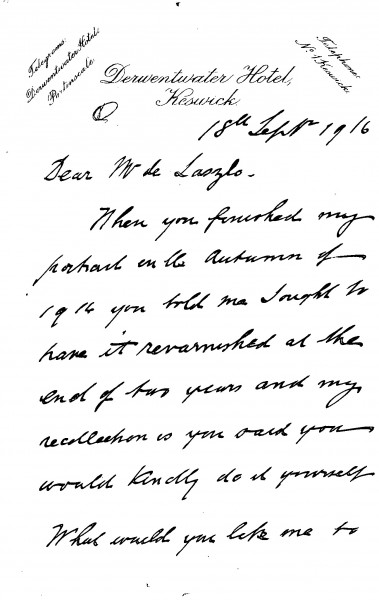 Telegrams:
Derwentwater Hotel,
Portinscale.
Telephone:
No 1, Keswick.
Derwentwater Hotel,
Keswick
18th Sept 1916
Dear Mr de Laszlo.
When you finished my
portrait in the Autumn of
1914 you told me I ought to
have it revarnished at the
end of two years and my
recollection is you said you
would kindly do it yourself
What would you like me to